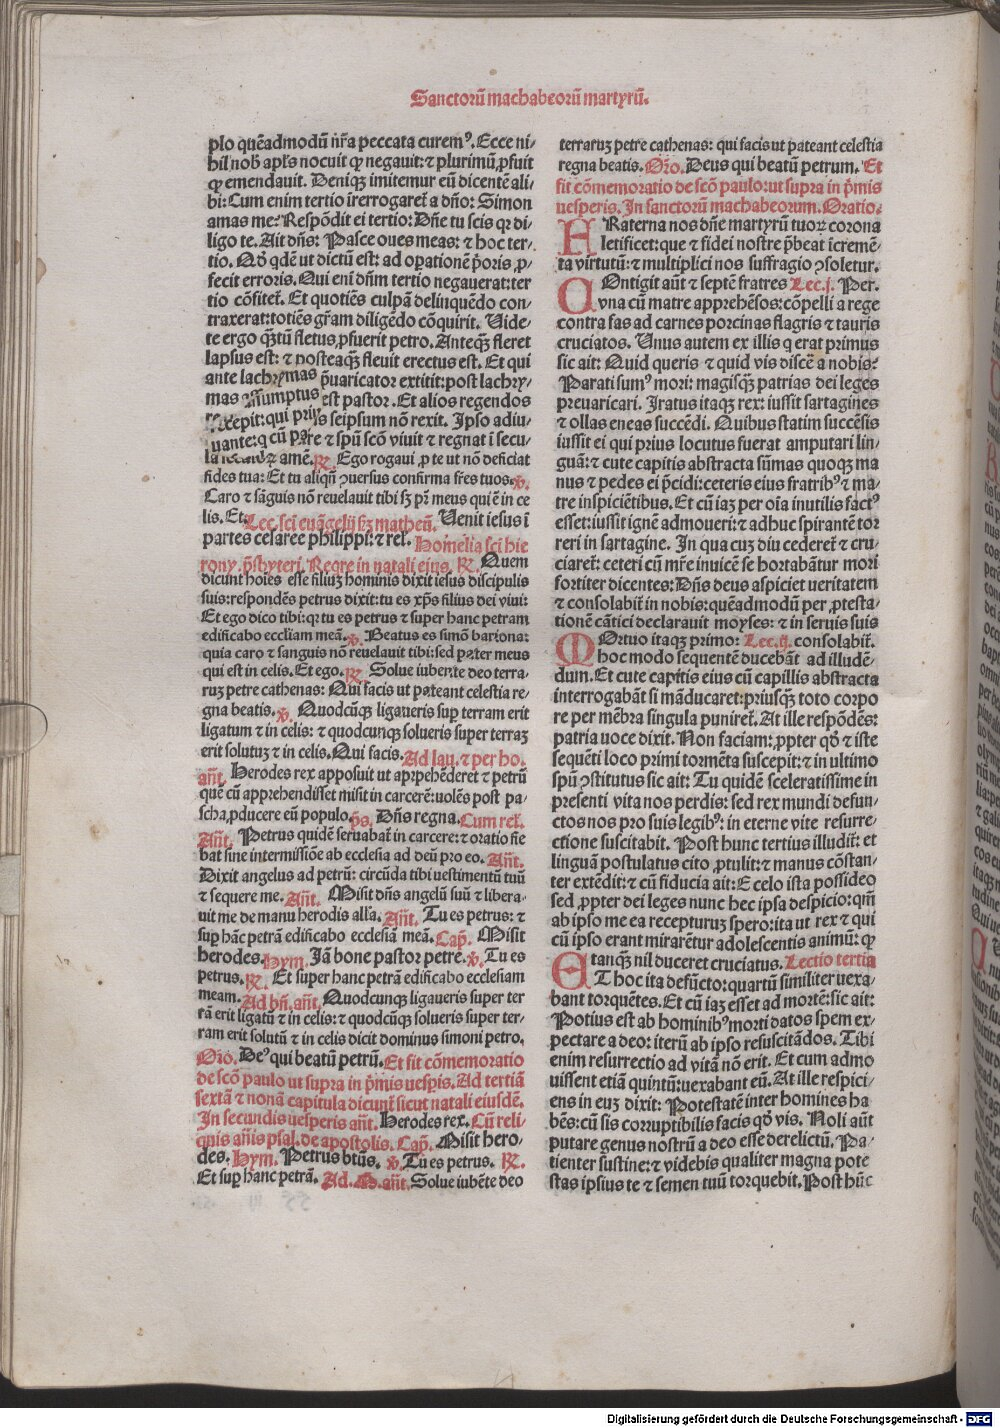 Sanctorū machabeorū martyrū.
plo quēadmodū nr̄a peccata curemꝰ. Ecce ni-
hil nob̄ apl̄s nocuit qꝫ negauit: ⁊ plurimū ꝓfuit
qꝫ emendauit. Deniqꝫ imitemur eū dicentē ali-
bi: Cum enim tertio īterrogaret̄ a dn̄o: Simon
amas me? Respōdit ei tertio: Dn̄e tu scis qꝛ di-
ligo te. Ait dn̄s: Pasce oues meas: ⁊ hoc ter-
tio. Qd̄ qdē ut dictū est: ad oꝑationē p̄oris ꝓ-
fecit erroris. Qui eni dn̄m tertio negauerat: ter
tio cōfitet̄. Et quotiēs culpā delinquēdo con-
traxerat: totiēs gr̄am diligēdo cōquirit. Uide-
te ergo qꝫtū fletus ꝓfuerit petro. Anteqꝫ fleret
lapsus est: ⁊ posteaqꝫ fleuit erectus est. Et qui
ante lachrymas p̄uaricator extitit: post lachry-
mas assumptus est pastor. Et alios regendos
recepit: qui prius seipsum nō rexit. Ipso adiu-
uante: q cū patre ⁊ spū scō viuit ⁊ regnat ī secu-
la amē. ℞. Ego rogaui ꝓ te ut nō deficiat
fides tua: Et tu aliqn̄ ꝯuersus confirma fr̄es tuos. ℣.
Caro ⁊ sāguis nō reuelauit tibi sꝫ pr̄ meus qui ē in ce
lis. Et. Lec. sci euāgelij sꝫ matheū. Uenit iesus ī
partes cesaree philippi: ⁊ rel̄. Homelia sci hie
rony. p̄sbyteri. Reqre in natali eius. ℞. Quem
dicunt hoīes esse filiuꝫ hominis dixit iesus discipulis
suis: respondēs petrus dixit: tu es xp̄s filius dei viui:
Et ego dico tibi: qꝛ tu es petrus ⁊ super hanc petram
edificabo eccl̄iam meā. ℣. Beatus es simō bariona:
quia caro ⁊ sanguis nō reuelauit tibi: sed pater meus
qui est in celis. Et ego. ℞. Solue iubente deo terra-
ruꝫ petre cathenas: Qui facis ut pateant celestia re
gna beatis. ℣. Quodcūqꝫ ligaueris suꝑ terram erit
ligatum ⁊ in celis: ⁊ quodcunqꝫ solueris super terraꝫ
erit solutuꝫ ⁊ in celis. Qui facis. Ad lau. ⁊ per ho.
an̄t. Herodes rex apposuit ut apprehēderet ⁊ petrū
quē cū apprehendisset misit in carcerē: uolēs post pa-
scha ꝓducere eū populo. p̄s. Dn̄s regna. Cum rel̄.
An̄t. Petrus quidē seruabat̄ in carcere: ⁊ oratio fie
bat sine intermissiōe ab ecclesia ad deū pro eo. An̄t.
Dixit angelus ad petrū: circūda tibi uestimentū tuū
⁊ sequere me. An̄t. Misit dn̄s angelū suū ⁊ libera-
uit me de manu herodis all̄a. An̄t. Tu es petrus: ⁊
suꝑ hāc petrā edificabo ecclesiā meā. Cap̄. Misit
herodes. Hym. Iā bone pastor petre. ℣. Tu es
petrus. ℞. Et super hanc petrā edificabo ecclesiam
meam. Ad bn̄. an̄t. Quodcunqꝫ ligaueris super ter
rā erit ligatū ⁊ in celis: ⁊ quodcūqꝫ solueris super ter-
ram erit solutū ⁊ in celis dicit dominus simoni petro.
Or̄o. Deꝰ qui beatū petrū. Et fit cōmemoratio
de scō paulo ut supra in p̄mis uesꝑis. Ad tertiā
sextā ⁊ nonā capitula dicunt̄ sicut natali eiusdē.
In secundis uesperis an̄t. Herodes rex. Cū reli-
quis an̄is psal. de apostolis. Cap̄. Misit hero-
des. Hym. Petrus bt̄us. ℣. Tu es petrus. ℞.
Et suꝑ hanc petrā. Ad. M. an̄t. Solue iubēte deo
terraruꝫ petre cathenas: qui facis ut pateant celestia
regna beatis. Or̄o. Deus qui beatū petrum. Et
fit cōmemoratio de scō paulo: ut supra in p̄mis
uesperis. In sanctorū machabeorum. Oratio.
FRaterna nos dn̄e martyrū tuoꝝ corona
letificet: que ⁊ fidei nostre p̄beat īcremē-
ta virtutū: ⁊ multiplici nos suffragio ꝯsoletur.
COntigit aūt ⁊ septē fratres Lec. j. Per.
vna cū matre apprehēsos: cōpelli a rege
contra fas ad carnes porcinas flagris ⁊ tauris
cruciatos. Unus autem ex illis q erat primus
sic ait: Quid queris ⁊ quid vis discē a nobis?
Parati sumꝰ mori: magisqꝫ patrias dei leges
preuaricari. Iratus itaqꝫ rex: iussit sartagines
⁊ ollas eneas succēdi. Quibus statim succēsis
iussit ei qui prius locutus fuerat amputari lin-
guā: ⁊ cute capitis abstracta sūmas quoqꝫ ma
nus ⁊ pedes ei p̄cidi: ceteris eius fratribꝰ ⁊ ma-
tre inspiciētibus. Et cū iaꝫ per oīa inutilis factꝰ
esset: iussit ignē admoueri: ⁊ adhuc spirantē tor
reri in sartagine. In qua cuꝫ diu cederet̄ ⁊ cru-
ciaret̄: ceteri cū mr̄e inuicē se hortabātur mori
fortiter dicentes: Dn̄s deus aspiciet ueritatem
⁊ consolabit̄ in nobis: quēadmodū per ꝓtesta-
tionē cātici declarauit moyses: ⁊ in seruis suis
MOrtuo itaqꝫ primo: Lec. ij. consolabit̄.
hoc modo sequentē ducebāt ad illudē-
dum. Et cute capitis eius cū capillis abstracta
interrogabāt si māducaret: priusqꝫ toto corpo
re per mēbra singula puniret̄. At ille respōdēs:
patria uoce dixit. Non faciam: ꝓpter qd̄ ⁊ iste
sequēti loco primi tormēta suscepit: ⁊ in ultimo
spū ꝯstitutus sic ait: Tu quidē sceleratissime in
presenti vita nos perdis: sed rex mundi defun-
ctos nos pro suis legibꝰ: in eterne vite resurre-
ctione suscitabit. Post hunc tertius illudit̄: et
linguā postulatus cito ꝓtulit: ⁊ manus cōstan-
ter extēdit: ⁊ cū fiducia ait: E celo ista possideo
sed ꝓpter dei leges nunc hec ipsa despicio: qm̄
ab ipso me ea recepturuꝫ spero: ita ut rex ⁊ qui
cū ipso erant mirarētur adolescentis animū: qꝫ
tanqꝫ nil duceret cruciatus. Lectio tertia
ET hoc ita defūcto: quartū similiter uexa-
bant torquētes. Et cū iaꝫ esset ad mortē: sic ait:
Potius est ab hominibꝰ morti datos spem ex-
pectare a deo: iterū ab ipso resuscitādos. Tibi
enim resurrectio ad vitā nō erit. Et cum admo
uissent etiā quintū: uexabant eū. At ille respici-
ens in euꝫ dixit: Potestatē inter homines ha
bēs: cū sis corruptibilis facis qd̄ vis. Noli aūt
putare genus nostrū a deo esse derelictū. Pa-
tienter sustine: ⁊ videbis qualiter magna pote
stas ipsius te ⁊ semen tuū torquebit. Post hūc
Digitalisierung gefördert durch die Deutsche Forschungsgemeinschaft - DFG